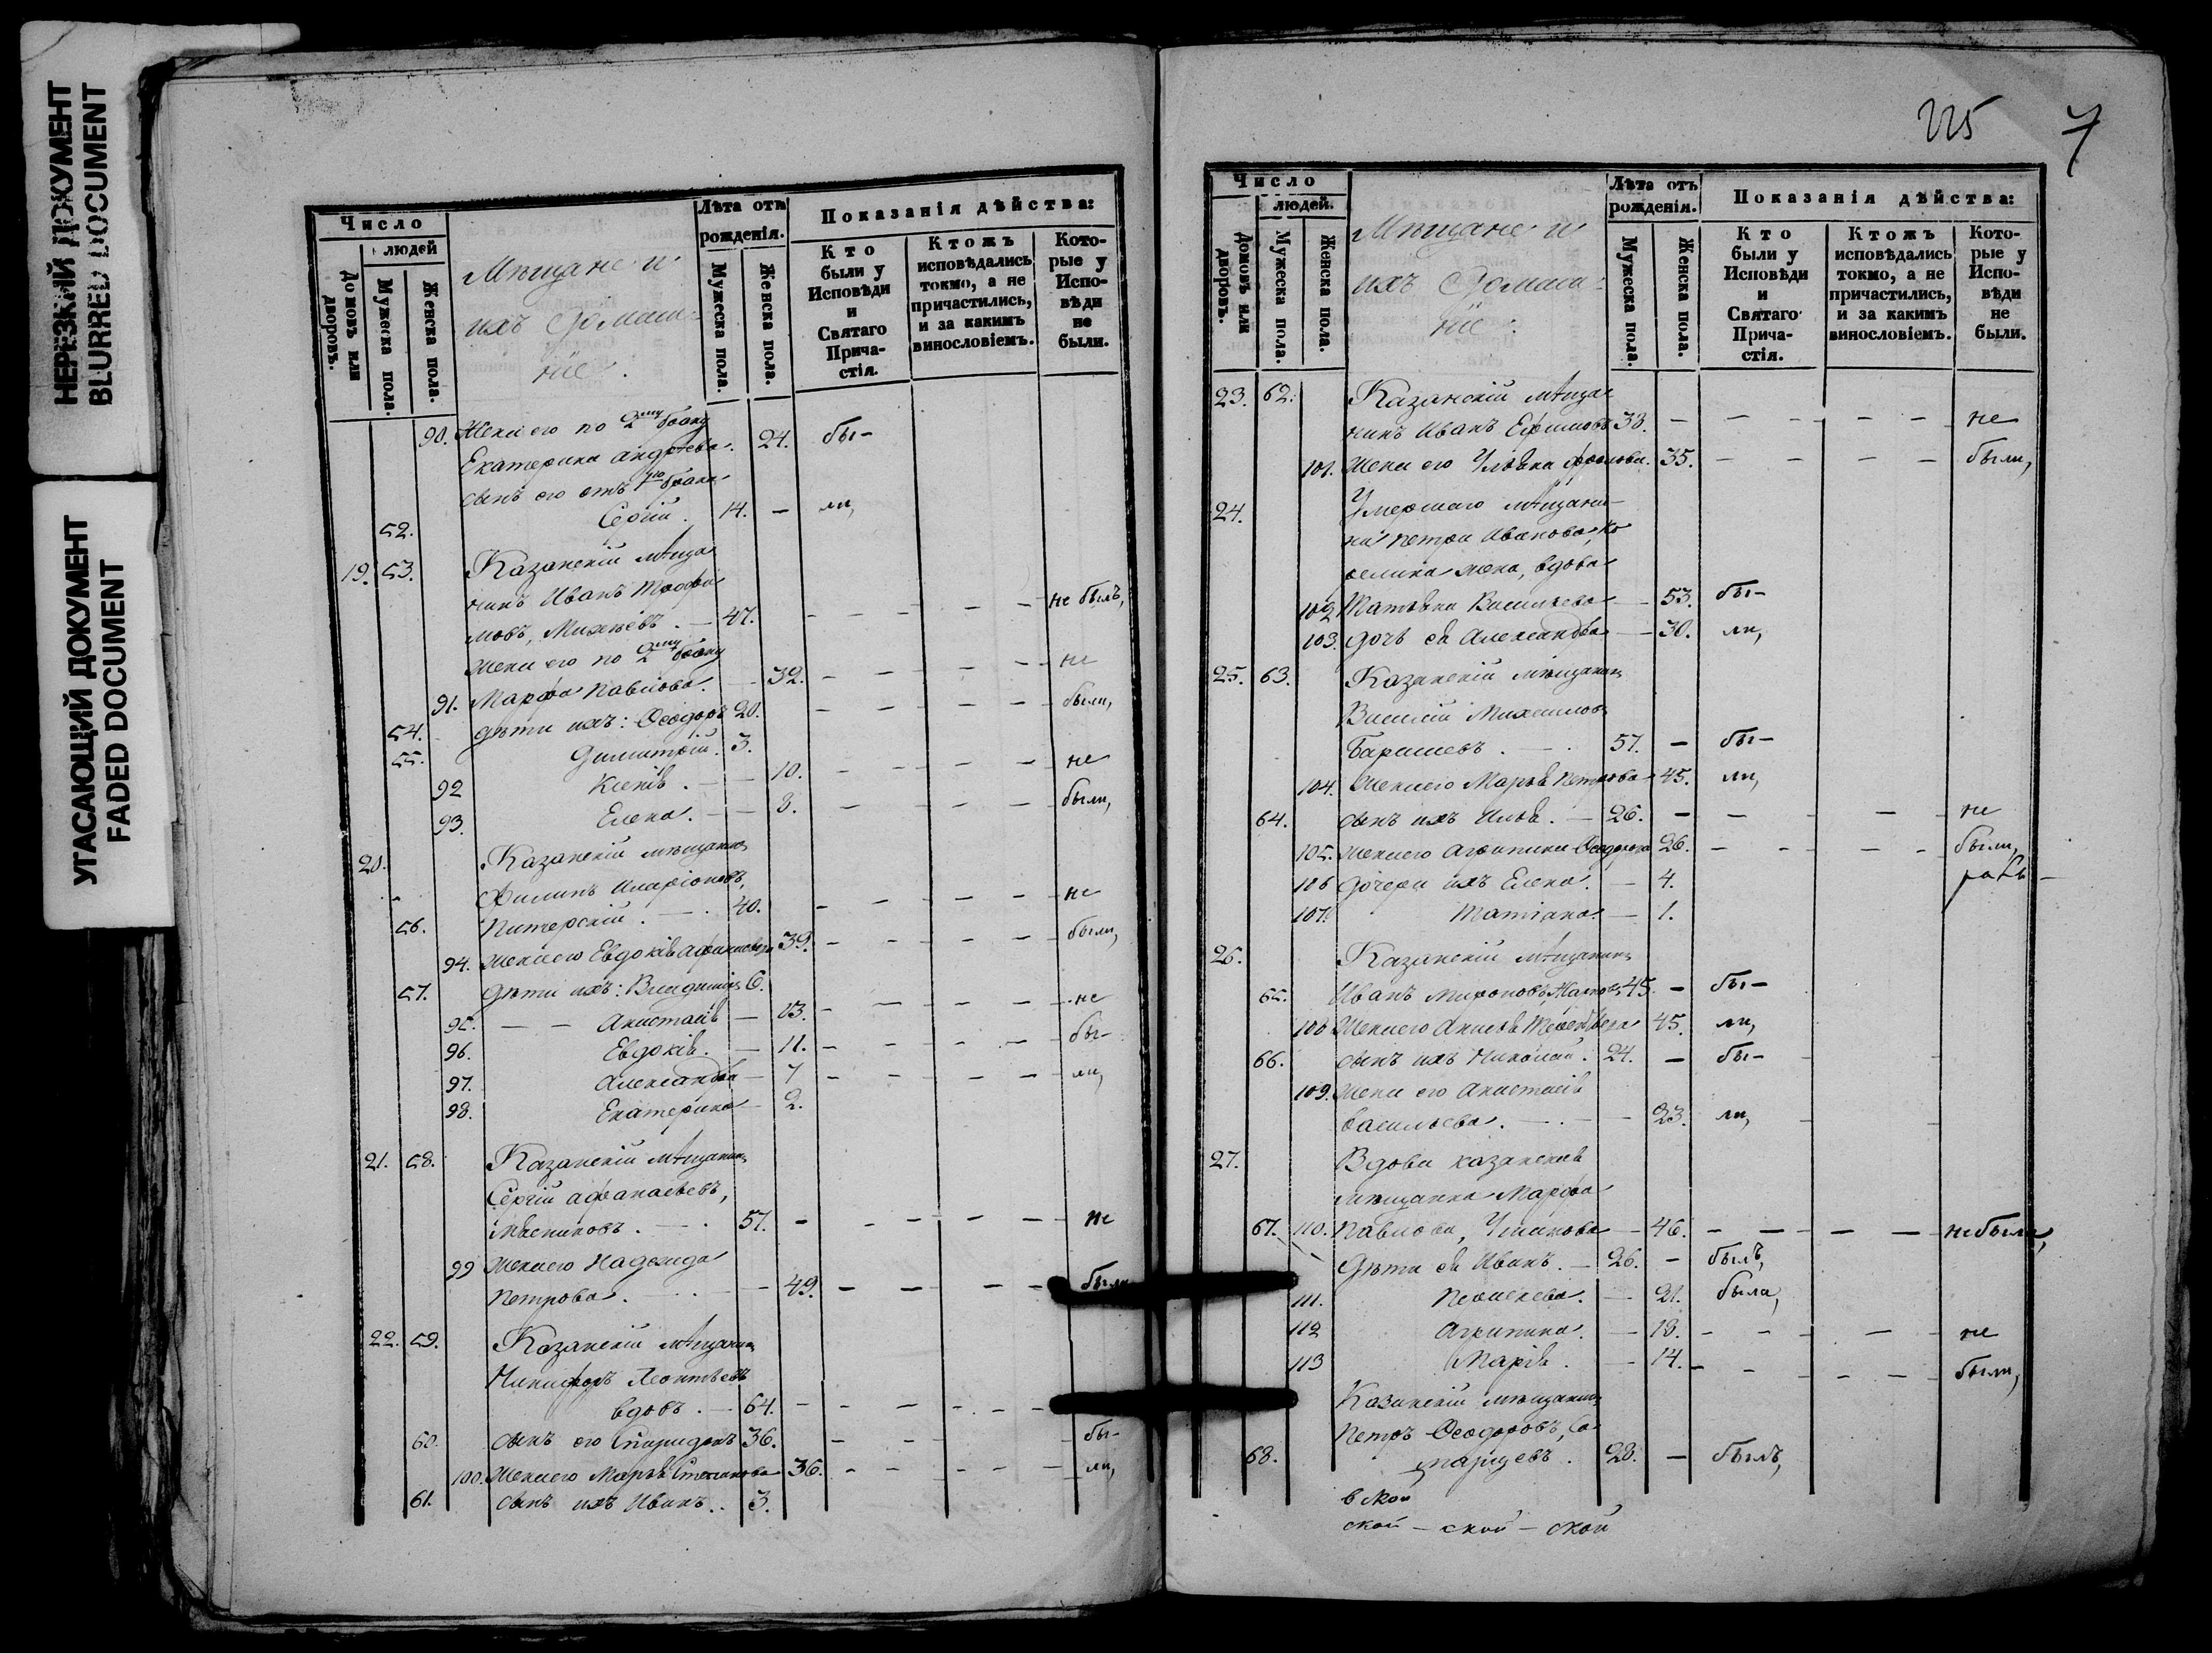 НЕРЕЗКИЙ ДОКУМЕНТ
BLURRED DOCUMENT
УГАСАЮЩИЙ ДОКУМЕНТ
FADED DOCUMENT
Число
людей
Домовъ или дворовъ.
Мужеска пола.
Женска пола.
Мѣщане и
ихъ Домаш-
ніе.
Лѣта отъ рожденія.
Мужеска пола.
Женска пола.
Показанія дѣйства:
Кто были у Исповѣди и Святаго Прича-стія.
Ктожъ исповѣдались токмо, а не причастились, и за какимъ винословіемъ.
Кото-рые у Испо-вѣди не были.
90. Жена его по 2му браку
Екатерина Андреева. 24. бы-
сынъ его отъ 1го брака
52. Сергій. 14. - ли,
19. 53. Казанскій мѣща
нинъ Иванъ Трофи
мовъ, Михѣевъ. - 47. - - - - - не былъ,
жена его по 2му браку
91. Марфа Павлова. - 32. - - - - - не
54. дѣти ихъ: Ѳеодоръ 20. - - - - - были,
55. Димитрій. 3.
92 Ксенія. - - 10. - - - - не
93. Елена. - - 8. - - - были,
20. Казанскій мѣщанинъ
Филипъ Иларіоновъ,
56. Питерскій. - . 40. - - - - - не
94. жена его Евдокія 39. - - - - - были,
57. дѣти ихъ: Владиміръ 6.
95. - - Анастасія - 13. - - - - - не
96. Евдокія. - 11. - - - - - бы-
97. Александра - 7 - - - - - ли,
98. Екатерина - 2.
21. 58. Казанскій мѣщанинъ
Сергій Афанасьевъ,
57. - - - - - не
99 жена его Надежда
Петрова. - . - 49. - - - - были
22. 59. Казанскій мѣщанинъ
Никифоръ Леонтьевъ
вдовъ. - 64. - - - - -
60. сынъ его Спиридонъ 36. - - - бы-
100. жена его Марья Степанова 36. - - - - - ли,
61. сынъ ихъ Иванъ.. 3.
225 7
Число
людей.
Домовъ или дворовъ.
Мужеска пола.
Женска пола.
Мѣщане и
ихъ Домаш-
ніе.
Лѣта отъ рожденія.
Мужеска пола.
Женска пола.
Показанія дѣйства:
Кто были у Исповѣди и Святаго Прича-стія.
Ктожъ исповѣдались токмо, а не причастились, и за какимъ винословіемъ.
Кото-рые у Испо-вѣди не были.
23. 62. Казанскій мѣща
нинъ Иванъ Ефимовъ 38. - - - - - не
101. жена его 35. - - - - были,
24. Умершаго мѣщани-
на Петра Иванова, Ко
селина жена, вдова
102 Татьяна Васильева - 53. бы-
103. дочь ея Александра - 30. ли,
25. 63. Казанскій мѣщанинъ
Василій Михаиловъ
Барышевъ. - . 57. - бы-
104. Жена его Марья Петрова 45. ли,
64. сынъ ихъ Илья. - 26. - - - не
105. жена его Агрипина Ѳеодорова 26. - - - - были,
106 дочери ихъ Елена. - 4.
107. Татіана. - 1.
26. Казанскій мѣщанинъ
65. Иванъ Мироновъ, 45. - бы-
108 Жена его 45. ли,
66. сынъ ихъ Николай. 24. - бы-
109. жена его Анастасія
Васильева. - . - 23. ли,
27. Вдова казанская
мѣщанка Марфа
67. 110. Павлова, Ушакова - 46. - - - - не была,
Дѣти ея Иванъ. - 26. - былъ,
111. Пелагея. - 21. была,
112 Агрипина. - 18. - - - не
113 Марія. - 14. - - - - были,
Казанскій мѣщанинъ
Петръ Ѳеодоровъ,
68. 28. - былъ,
ской - ской - ской